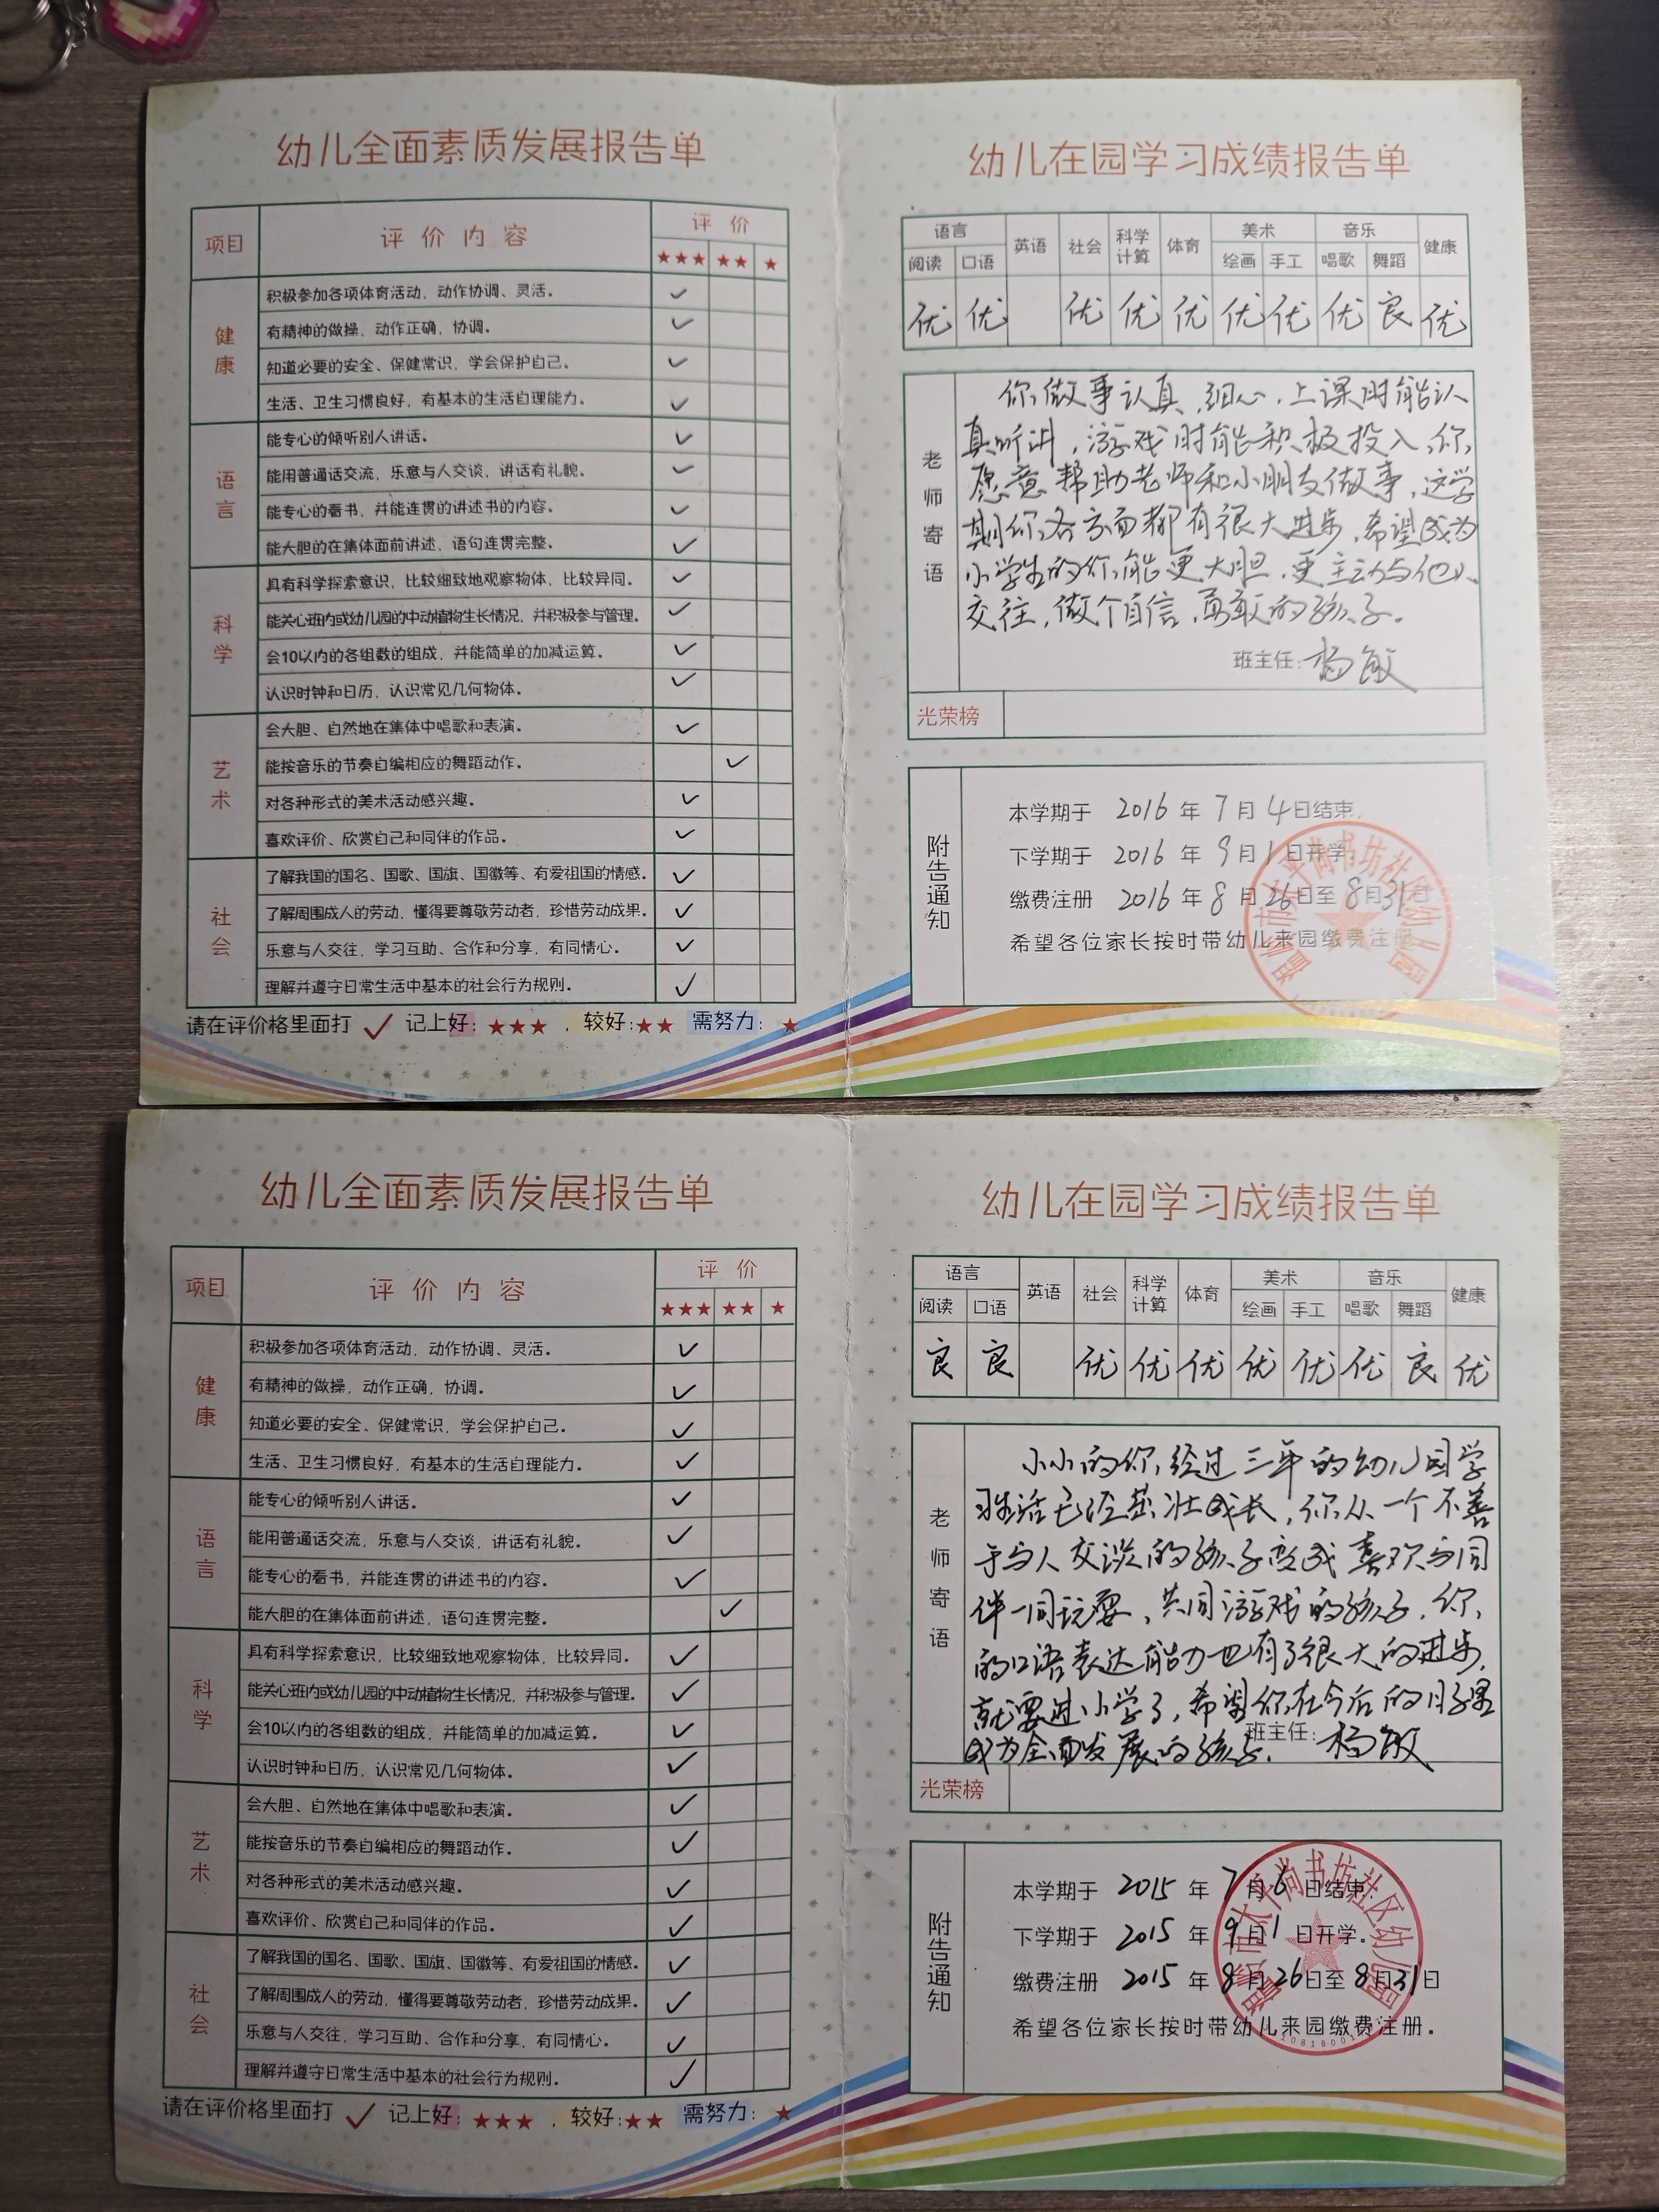 幼儿全面素质发展报告单
项目 评价内容 评价
★★★ ★★ ★
健康
积极参加各项体育活动，动作协调、灵活。 ✓
有精神的做操，动作正确，协调。 ✓
知道必要的安全、保健常识，学会保护自己。 ✓
生活、卫生习惯良好，有基本的生活自理能力。 ✓
语言
能专心的倾听别人讲话。 ✓
能用普通话交流，乐意与人交谈，讲话有礼貌。 ✓
能专心的看书，并能连贯的讲述书的内容。 ✓
能大胆的在集体面前讲述，语句连贯完整。 ✓
科学
具有科学探索意识，比较细致地观察物体，比较异同。 ✓
能关心班内或幼儿园的中动植物生长情况，并积极参与管理。 ✓
会10以内的各组数的组成，并能简单的加减运算。 ✓
认识时钟和日历，认识常见几何物体。 ✓
艺术
会大胆、自然地在集体中唱歌和表演。 ✓
能按音乐的节奏自编相应的舞蹈动作。 ✓
对各种形式的美术活动感兴趣。 ✓
喜欢评价、欣赏自己和同伴的作品。 ✓
社会
了解我国的国名、国歌、国旗、国徽等、有爱祖国的情感。 ✓
了解周围成人的劳动，懂得要尊敬劳动者，珍惜劳动成果。 ✓
乐意与人交往，学习互助、合作和分享，有同情心。 ✓
理解并遵守日常生活中基本的社会行为规则。 ✓
请在评价格里面打 ✓ 记上好：★★★ ，较好：★★ 需努力：★
幼儿在园学习成绩报告单
语言 英语 社会 科学计算 体育 美术 音乐 健康
阅读 口语 绘画 手工 唱歌 舞蹈
优 优 优 优 优 优 优 优 良 优
老师寄语
你做事认真，细心，上课时能认
真听讲，游戏时能积极投入，你
愿意帮助老师和小朋友做事，这学
期你各方面都有很大进步，希望成为
小学生的你能更大胆，更主动与他人
交往，做个自信，勇敢的孩子。
班主任：杨敏
光荣榜
附告通知
本学期于 2016 年 7 月 4 日结束.
下学期于 2016 年 9 月 1 日开学
缴费注册 2016 年 8 月 26 日至 8 月 31 日
希望各位家长按时带幼儿来园缴费注册
太平尚书坊社区幼儿园
幼儿全面素质发展报告单
项目 评价内容 评价
★★★ ★★ ★
健康
积极参加各项体育活动，动作协调、灵活。 ✓
有精神的做操，动作正确，协调。 ✓
知道必要的安全、保健常识，学会保护自己。 ✓
生活、卫生习惯良好，有基本的生活自理能力。 ✓
语言
能专心的倾听别人讲话。 ✓
能用普通话交流，乐意与人交谈，讲话有礼貌。 ✓
能专心的看书，并能连贯的讲述书的内容。 ✓
能大胆的在集体面前讲述，语句连贯完整。 ✓
科学
具有科学探索意识，比较细致地观察物体，比较异同。 ✓
能关心班内或幼儿园的中动植物生长情况，并积极参与管理。 ✓
会10以内的各组数的组成，并能简单的加减运算。 ✓
认识时钟和日历，认识常见几何物体。 ✓
艺术
会大胆、自然地在集体中唱歌和表演。 ✓
能按音乐的节奏自编相应的舞蹈动作。 ✓
对各种形式的美术活动感兴趣。 ✓
喜欢评价、欣赏自己和同伴的作品。 ✓
社会
了解我国的国名、国歌、国旗、国徽等、有爱祖国的情感。 ✓
了解周围成人的劳动，懂得要尊敬劳动者，珍惜劳动成果。 ✓
乐意与人交往，学习互助、合作和分享，有同情心。 ✓
理解并遵守日常生活中基本的社会行为规则。 ✓
请在评价格里面打 ✓ 记上好：★★★ ，较好：★★ 需努力：★
幼儿在园学习成绩报告单
语言 英语 社会 科学计算 体育 美术 音乐 健康
阅读 口语 绘画 手工 唱歌 舞蹈
良 良 优 优 优 优 优 优 良 优
老师寄语
小小的你，经过三年的幼儿园学
习生活已经茁壮成长，你从一个不善
于与人交谈的孩子变成喜欢与同
伴一同玩耍，共同游戏的孩子，你
的口语表达能力也有了很大的进步，
就要进小学了，希望你在今后的日子里
成为全面发展的孩子.
班主任：杨敏
光荣榜
附告通知
本学期于 2015 年 7 月 6 日结束.
下学期于 2015 年 9 月 1 日开学。
缴费注册 2015 年 8 月 26 日至 8 月 31 日
希望各位家长按时带幼儿来园缴费注册。
太平尚书坊社区幼儿园